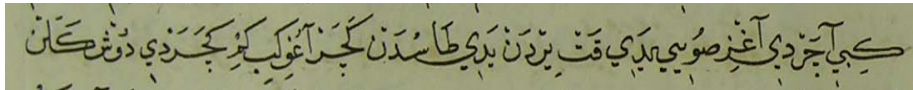 كبي آچردي آغز صويي يدي قت يردن يدي طاسدن كچر آغو كبي كچردي دوش كلن